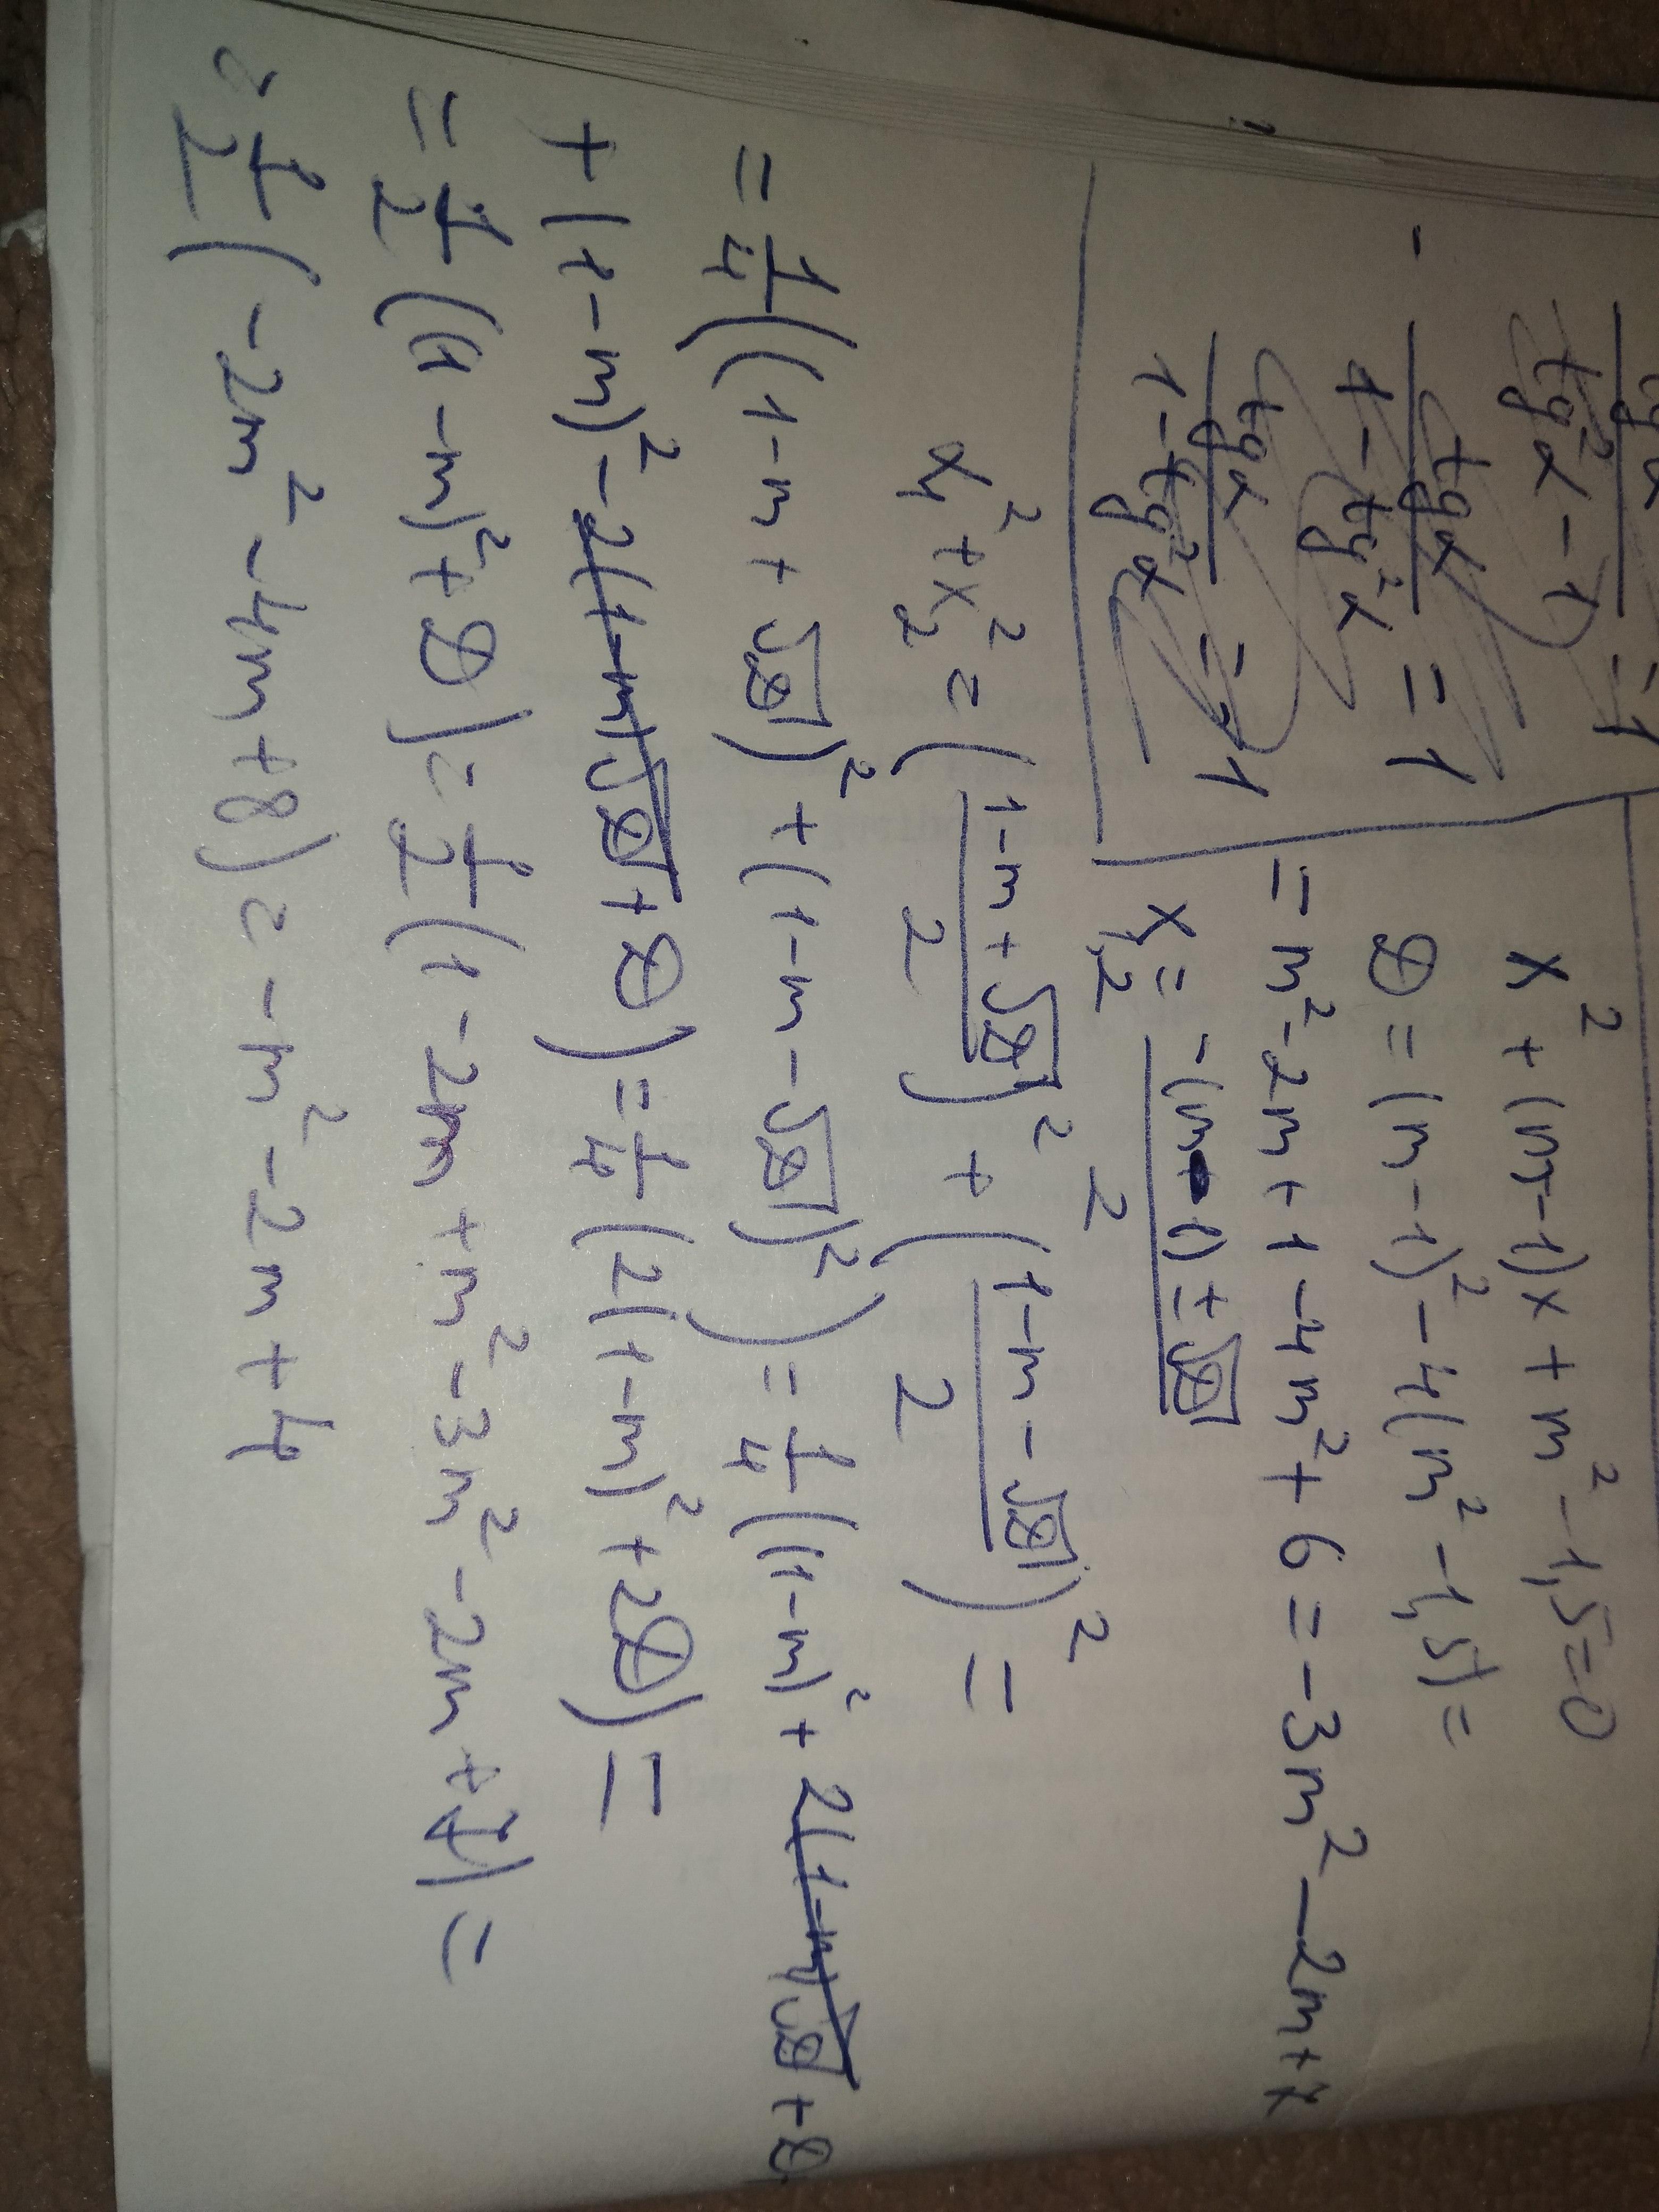 tgα / tg²α - 1 = 1
- tgα / 1 - tg²α = 1
tgα / 1 - tg²α = -1
x² + (m-1)x + m² - 1,5 = 0
D = (m-1)² - 4(m² - 1,5) =
= m² - 2m + 1 - 4m² + 6 = -3m² - 2m + 7
x₁,₂ = -(m - 1) ± √D / 2
x₁² + x₂² = (1-m+√D / 2)² + (1-m-√D / 2)² =
= 1/4 ((1-m+√D)² + (1-m-√D)²) = 1/4 ((1-m)² + 2(1-m)√D + D
+ (1-m)² - 2(1-m)√D + D) = 1/4 (2(1-m)² + 2D) =
= 1/2 ((1-m)² + D) = 1/2 (1 - 2m + m² - 3m² - 2m + 7) =
= 1/2 (-2m² - 4m + 8) = -m² - 2m + 4